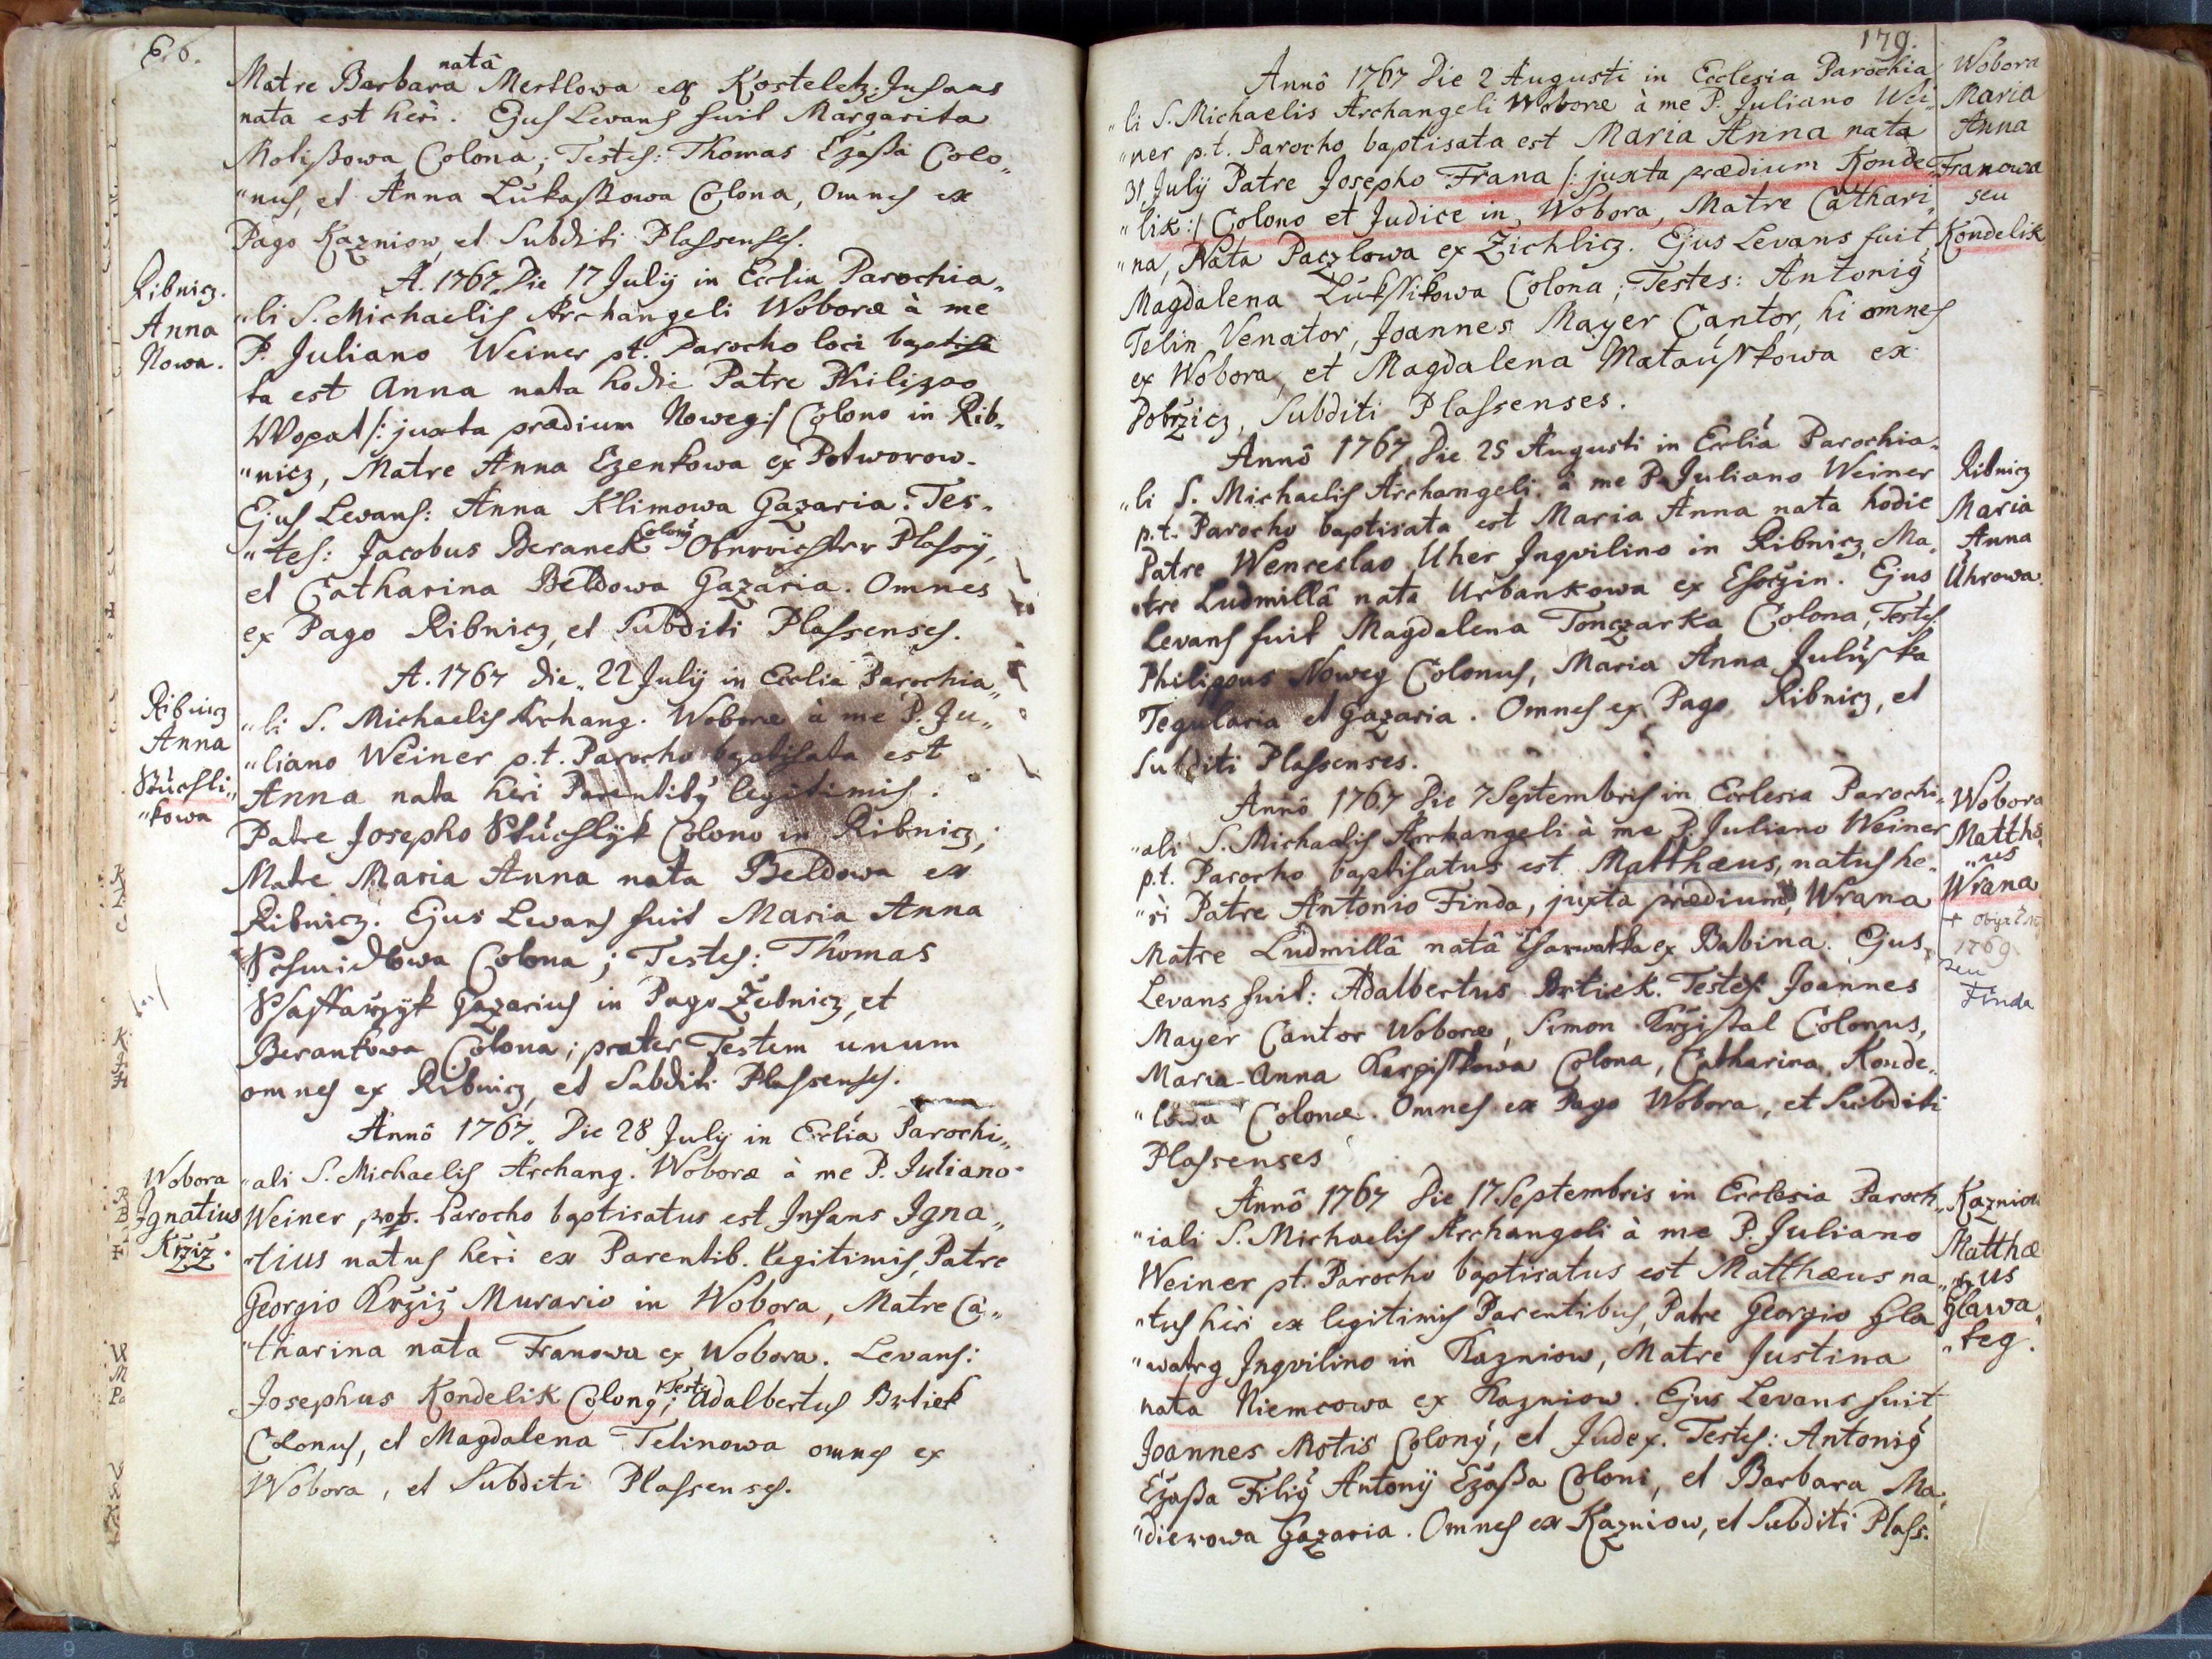 natâ
Matre Barbara Mertlowa ex Kosteletz. Infans
nata est heri. Ejus Levans fuit Margarita
Motißowa Colona; Testes: Thomas Ezaßa Colo„
"nus, et Anna Lukaßowa Colona, omnes ex
Pago Kazniow, et Subditi Plassenses.
Ribnicz.
Anna
Nowa.
A. 1767. Die 17 July in Ecclia Parochia„
"li S. Michaelis Archangeli Woboræ à me
P. Juliano Weiner pt. Parocho loci baptisa
ta est Anna nata hodie Patre Philippo
Wopat /: juxta prædium Noweg :/ Colono in Rib„
"nicz, Matre Anna Ezenkowa ex Potworow.
Ejus Levans: Anna Klimowa Gazaria. Tes„
"tes: Jacobus Beranek Colonus Plassÿ,
et Catharina Beldowa Gazaria. Omnes
ex Pago Ribnicz, et Subditi Plassenses.
Ribnicz
Anna
"kowa
A. 1767 die 22 July in Ecclia Parochia„
"li S. Michaelis Archang. Woboræ à me P. Ju„
"liano Weiner p.t. Parocho baptisata est
Anna nata heri Parentibus legitimis.
Patre Josepho Colono in Ribnicz;
Matre Maria Anna nata Beldowa ex
Ribnicz. Ejus Levans fuit Maria Anna
Schmidlowa Colona; Testes: Thomas
Gazarius in Pago Žebnicz, et
Berankowa Colona; præter Testem unum
omnes ex Ribnicz, et Subditi Plassenses.
Wobora
Ignatius
Kržiž.
Annô 1767. Die 28 July in Ecclia Parochi„
"ali S. Michaelis Archang. Woboræ à me P. Juliano
Weiner p.t. Parocho baptisatus est Infans Igna„
"tius natus heri ex Parentib. legitimis, Patre
Georgio Kržiž Murario in Wobora, Matre Ca„
"tharina nata Franowa ex Wobora. Levans:
Josephus Kondelik Colonus; Testes Adalbertus Brtiek
Colonus, et Magdalena Telinowa omnes ex
Wobora, et Subditi Plassenses.
179.
Wobora
Maria
Anna
Franowa
seu
Kondelik
Annô 1767 Die 2 Augusti in Ecclesia Parochia
"li S. Michaelis Archangeli Woboræ à me P. Juliano Wei„
"ner p.t. Parocho baptisata est Maria Anna nata
31 July Patre Josepho Frana /: juxta prædium Konde„
"lik :/ Colono et Judice in Wobora, Matre Cathari„
"na, Nata Paczlowa ex Zichlicz. Ejus Levans fuit
Magdalena Lukssikowa Colona; Testes: Antonius
Telin Venator, Joannes Mayer Cantor, hi omnes
ex Wobora, et Magdalena Matauskowa ex
Dobržicz, Subditi Plassenses.
Ribnicz
Maria
Anna
Uhrowa.
Annô 1767 Die 25 Augusti in Ecclia Parochia„
"li S. Michaelis Archangeli à me P. Juliano Weiner
p.t. Parocho baptisata est Maria Anna nata hodie
Patre Wenceslao Uher Inqvilino in Ribnicz, Ma„
"tre Ludmillâ nata Urbankowa ex Ejus
Levans fuit Magdalena Tonczarka Colona, Testes
Philippus Noweg Colonus, Maria Anna Juluska
Tegularia et Gazaria. Omnes ex Pago Ribnicz, et
Subditi Plassenses.
Wobora
Matthæ„
"us
Wrana
1769
seu
Finda
Annô 1767 Die 7 Septembris in Ecclesia Parochi„
"ali S. Michaelis Archangeli à me P. Juliano Weiner
p.t. Parocho baptisatus est Matthæus, natus he„
"ri Patre Antonio Finda, juxta prædium Wrana
Matre Ludmillâ natâ ex Babina. Ejus
Levans fuit: Adalbertus Brtiek. Testes: Joannes
Mayer Cantor Woboræ, Simon Kržistal Colonus,
Maria-Anna Karpisskowa Colona, Catharina Konde„
"lowa Colonæ. Omnes ex Pago Wobora, et Subditi
Plassenses
Kazniow
Matthæ
"us
Hlawa„
"teg.
Annô 1767 Die 17 Septembris in Ecclesia Paroch„
"iali S. Michaelis Archangeli à me P. Juliano
Weiner pt. Parocho baptisatus est Matthæus na„
"tus heri ex legitimis Parentibus, Patre Georgio Hla
"wateg Inqvilino in Kazniow, Matre Justina
nata Niemcowa ex Kazniow. Ejus Levans fuit
Joannes Motis Colonus, et Judex. Testes: Antonius
Ezaßa Filius Antony Ezaßa Coloni, et Barbara Ma„
"dierowa Gazaria. Omnes ex Kazniow, et Subditi Plass.